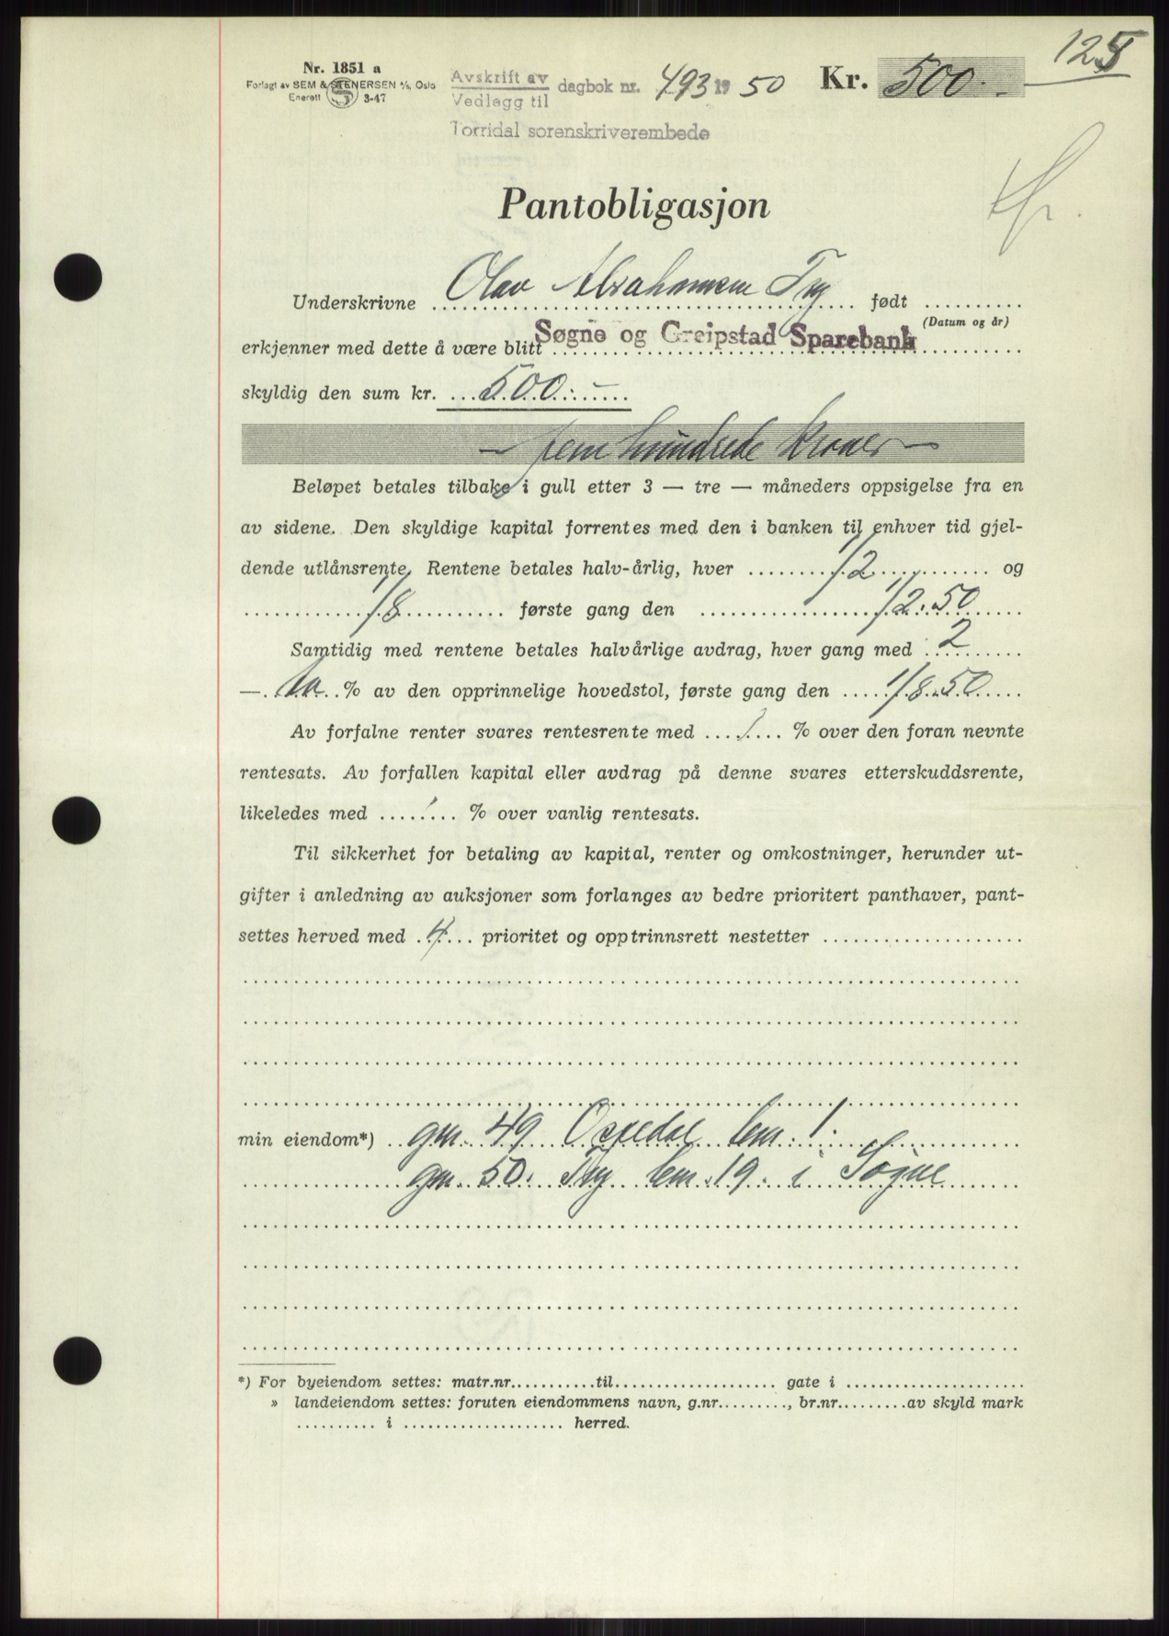 125
Nr. 1851 a
Forlagt av SEM & STENERSEN A/S, Oslo
Enerett S 3-47
Avskrift av
Vedlegg til
dagbok nr. 493 1950
Torridal sorenskriverembede
Kr. 500.-
Pantobligasjon
Underskrivne Olav Abrahamsen Try født
(Datum og år)
erkjenner med dette å være blitt Søgne og Greipstad Sparebank
skyldig den sum kr. 500.-
- fem hundrede kroner -
Beløpet betales tilbake i gull etter 3 — tre — måneders oppsigelse fra en
av sidene. Den skyldige kapital forrentes med den i banken til enhver tid gjel-
dende utlånsrente. Rentene betales halv-årlig, hver 1/2 og
1/8 første gang den 1/2.50
Samtidig med rentene betales halvårlige avdrag, hver gang med 2
— to % av den opprinnelige hovedstol, første gang den 1/8.50
Av forfalne renter svares rentesrente med 1 % over den foran nevnte
rentesats. Av forfallen kapital eller avdrag på denne svares etterskuddsrente,
likeledes med 1 % over vanlig rentesats.
Til sikkerhet for betaling av kapital, renter og omkostninger, herunder ut-
gifter i anledning av auksjoner som forlanges av bedre prioritert panthaver, pant-
settes herved med 4 prioritet og opptrinnsrett nestetter
min eiendom*) gnr. 49 Ospedal bnr. 1.
gnr. 50. Try bnr. 19. i Søgne
*) For byeiendom settes: matr.nr. til gate i
» landeiendom settes: foruten eiendommens navn, g.nr. , br.nr. av skyld mark
i herred.